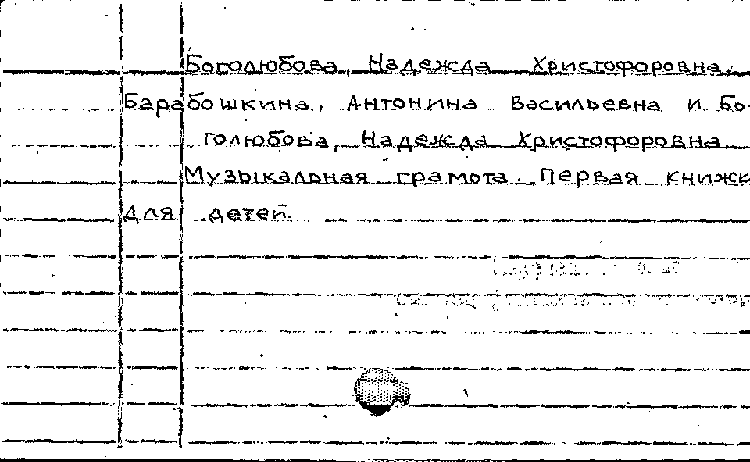 Боголюбова, Надежда Христофоровна.
Барабошкина, Антонина Васильевна и Бо-
голюбова, Надежда Христофоровна
Музыкальная грамота. Первая книжк
для детей.